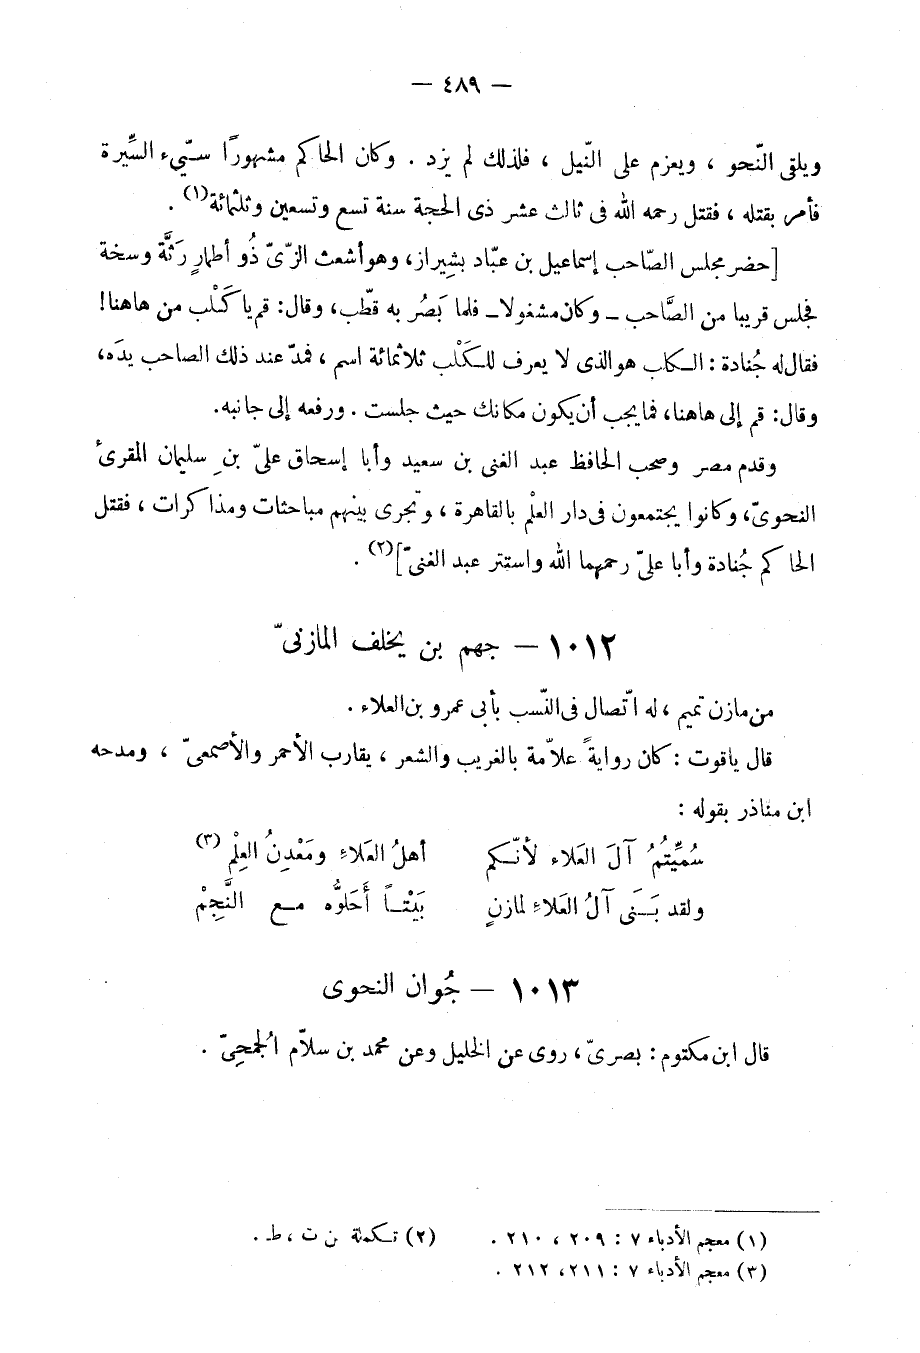 — ٤٨٩ —
ويلقى النّحو ، ويعزم على النّيل ، فلذلك لم يزد . وكان الحاكم مشهورًا سيّىء السِّيرة
فأمر بقتله ، فقتل رحمه الله فى ثالث عشر ذى الحجة سنة تسع وتسعين وثلثمائة(١) .
[حضر مجلس الصّاحب إسماعيل بن عبّاد بشيراز، وهو أشعث الزّىّ ذُو أطمارٍ رَثَّة وسخة
فجلس قريبا من الصَّاحب ــ وكان مشغولا ــ فلما بَصُر به قطّب، وقال: قم يا كَلْب من هاهنا!
فقال له جُنادة : الكلب هو الذى لا يعرف للكَلْب ثلاثمائة اسم ، فمدّ عند ذلك الصاحب يدَه،
وقال: قم إلى هاهنا، فما يجب أن يكون مكانك حيث جلست . ورفعه إلى جانبه.
وقدم مصر وصحب الحافظ عبد الغنى بن سعيد وأبا إسحاق علىّ بن سليمان المقرئ
النحوىّ، وكانوا يجتمعون فى دار العلْم بالقاهرة ، وتجرى بينهم مباحثات ومذاكرات ، فقتل
الحاكم جُنادة وأبا علىّ رحمهما الله واستتر عبد الغنىّ](٢) .
١٠١٢ — جهم بن يخلف المازنىّ
من مازن تميم ، له اتّصال فى النّسب بأبى عمرو بن العلاء .
قال ياقوت : كان روايةً علاّمة بالغريب والشعر ، يقارب الأحمر والأصمعىّ ، ومدحه
ابن مناذر بقوله :
سُمِّيتُمُ آلَ العَلاء لأنّكم أهلُ العَلاءِ ومَعْدِنُ العِلْمِ (٣)
ولقد بَنَى آلُ العَلاءِ لمازنٍ بَيْتاً أَحَلوُّه مع النَّجِمْ
١٠١٣ — جُوان النحوى
قال ابن مكتوم : بصرىّ ، روى عن الخليل وعن محمد بن سلاّم الجُمحِىّ .
(١) معجم الأدباء ٧ : ٢٠٩ ، ٢١٠ . (٢) تكملة من ت ، ط .
(٣) معجم الأدباء ٧ : ٢١١، ٢١٢ .